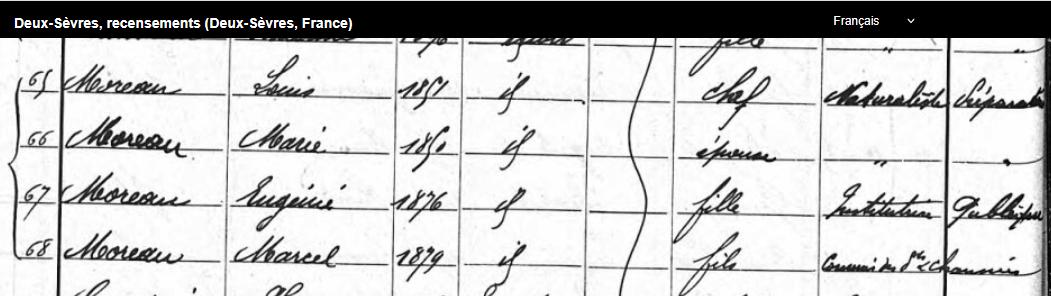 Deux-Sèvres, recensements (Deux-Sèvres, France) Français
fille " "
65 Moreau Louis 1851 id chef Naturaliste Préparateur
66 Moreau Marie 1850 id épouse " "
67 Moreau Eugénie 1876 id fille Institutrice Publique
68 Moreau Marcel 1879 id fils Commis des Pts et Chaussées